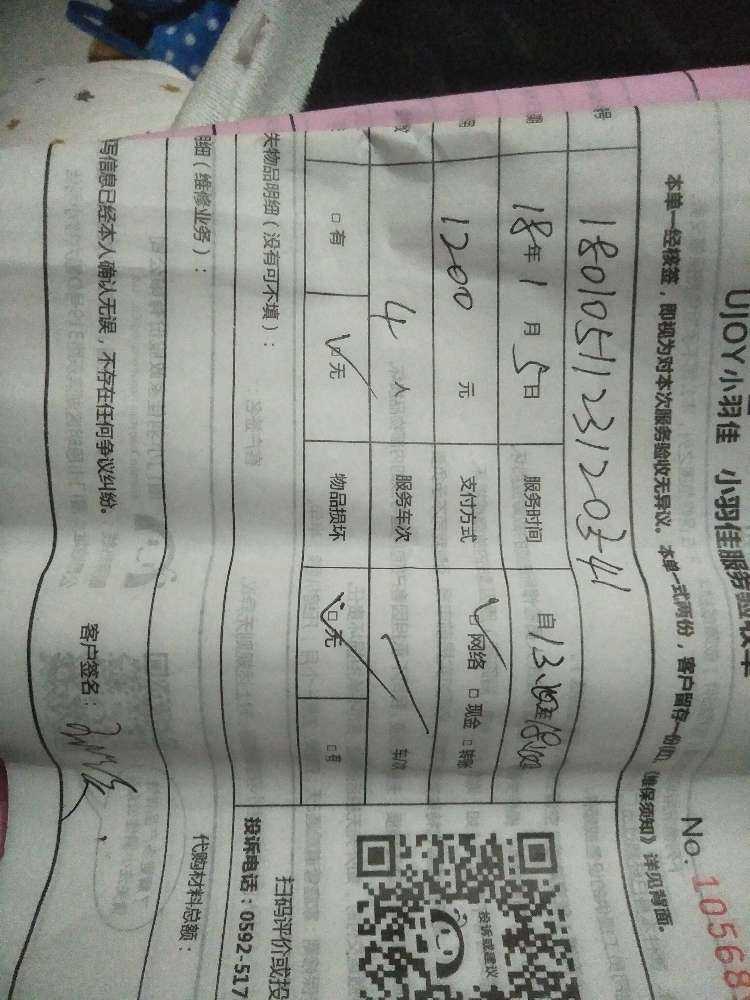 UJOY小羽佳 小羽佳服务验收单
No. 10568
本单一经核签，即视为对本次服务验收无异议。本单一式两份，客户留存一份（《维保须知》详见背面。
180105112312034
18年1月5日 服务时间 自13
1200 元 支付方式 ☑网络 □现金 □转账
4人 服务车次 车次
□有 ☑无 物品损坏 ☑无 □有
失物品明细（没有可不填）：
细（维修业务）：
代购材料总额：
写信息已经本人确认无误，不存在任何争议纠纷。
客户签名：
投诉或建议
扫码评价或投
投诉电话：0592-517